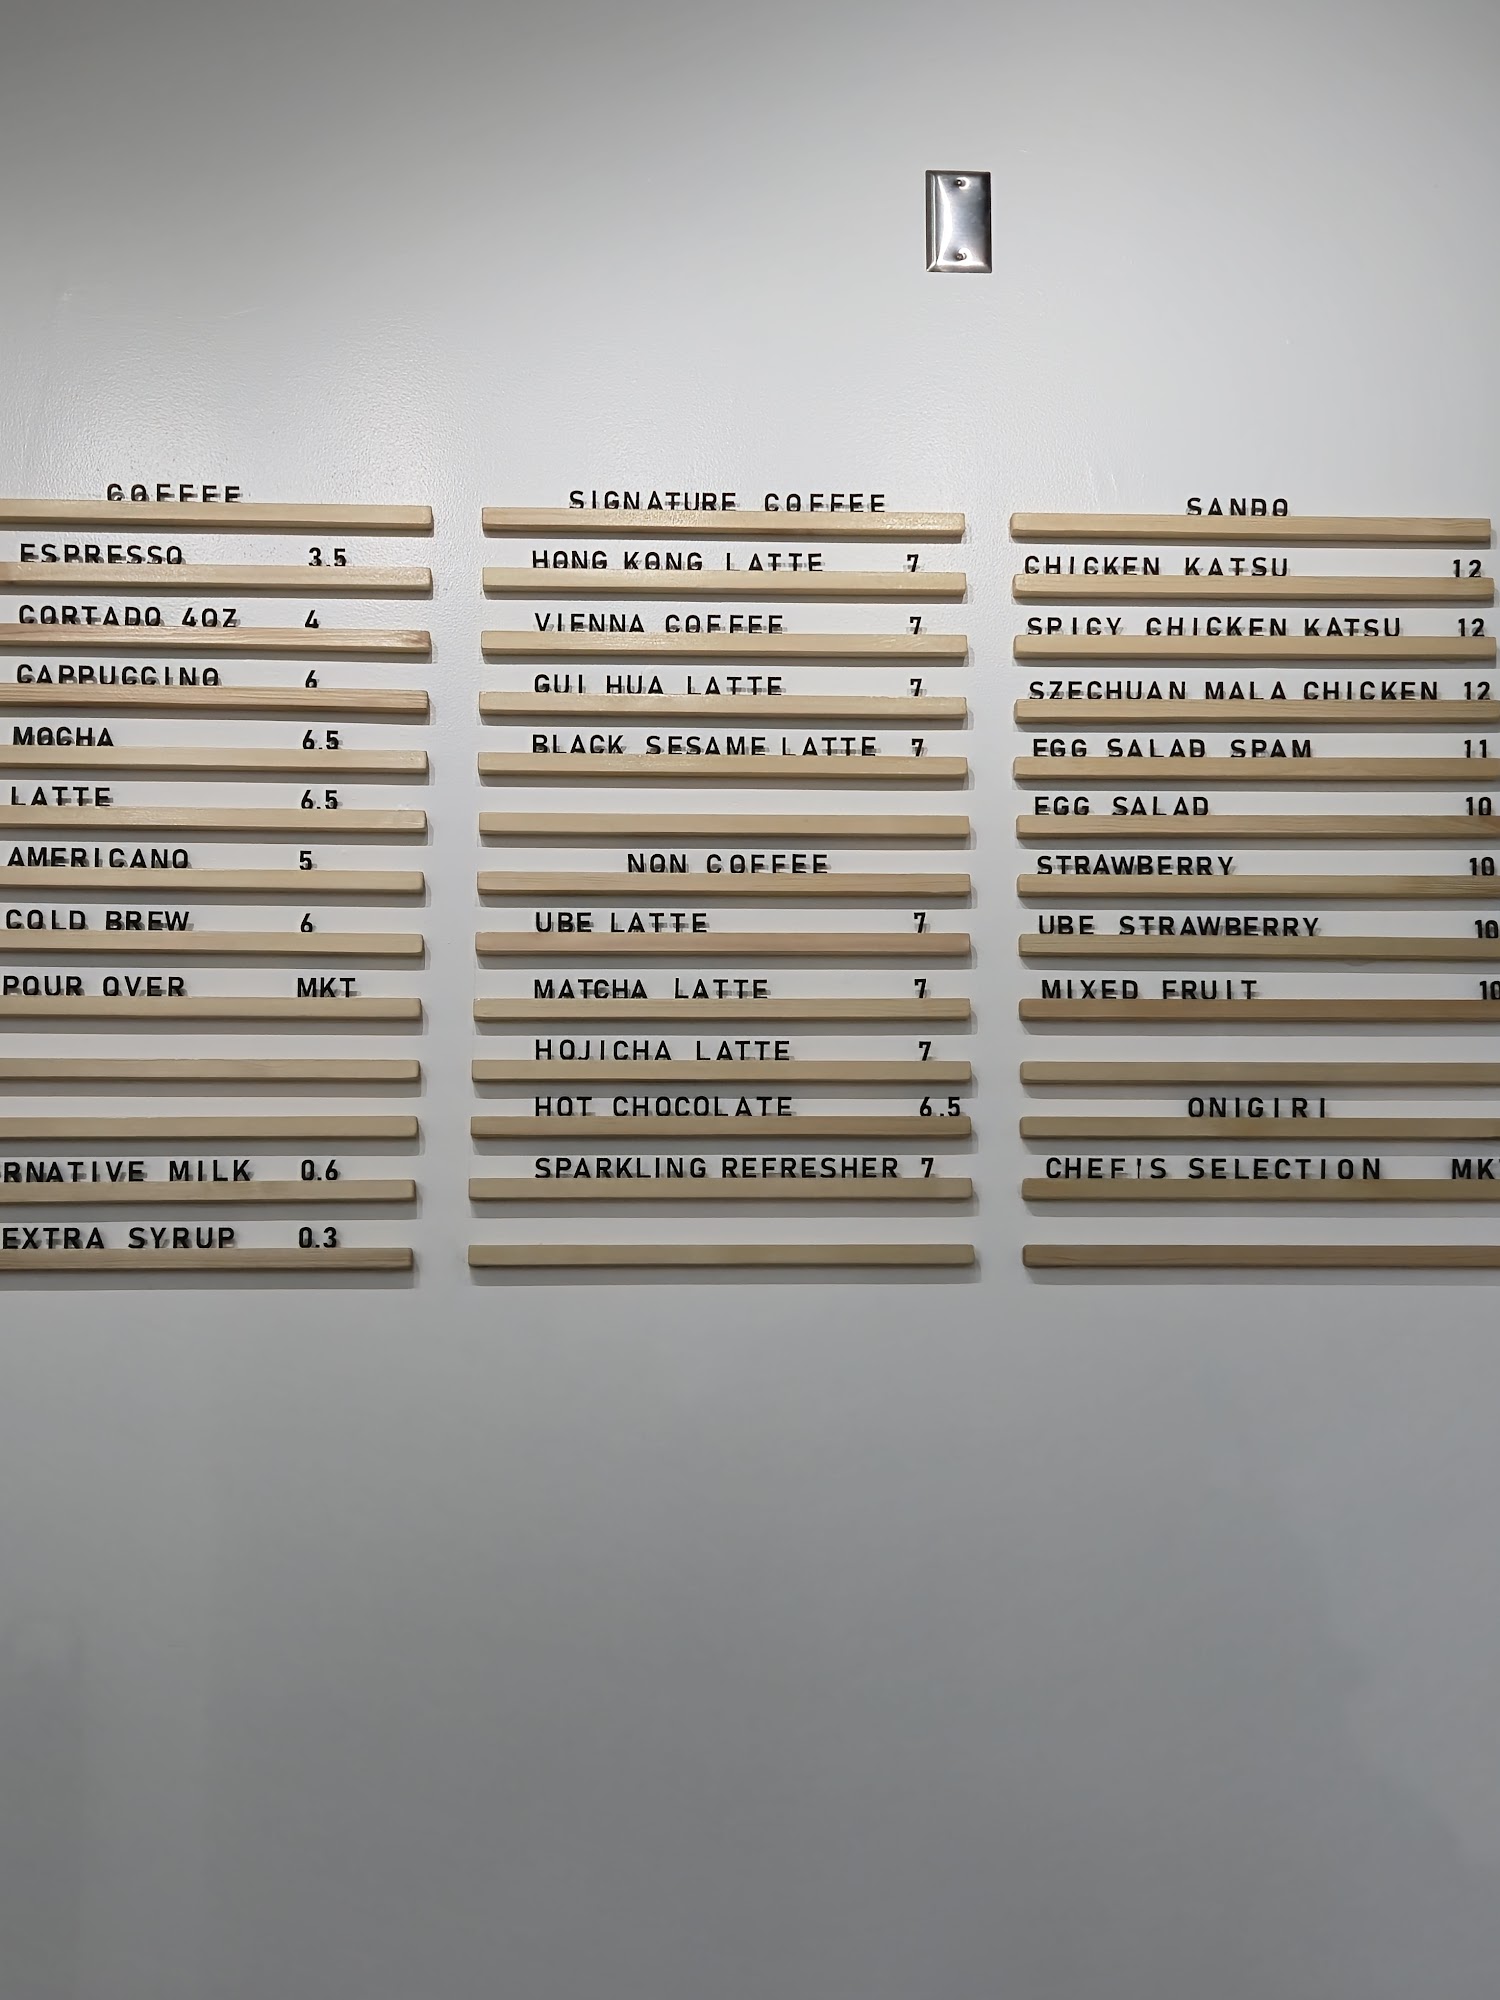 COFFEE
ESPRESSO 3.5
CORTADO 4OZ 4
CAPPUCCINO 6
MOCHA 6.5
LATTE 6.5
AMERICANO 5
COLD BREW 6
POUR OVER MKT
RNATIVE MILK 0.6
EXTRA SYRUP 0.3
SIGNATURE COFFEE
HONG KONG LATTE 7
VIENNA COFFEE 7
GUI HUA LATTE 7
BLACK SESAME LATTE 7
NON COFFEE
UBE LATTE 7
MATCHA LATTE 7
HOJICHA LATTE 7
HOT CHOCOLATE 6.5
SPARKLING REFRESHER 7
SANDO
CHICKEN KATSU 12
SPICY CHICKEN KATSU 12
SZECHUAN MALA CHICKEN 12
EGG SALAD SPAM 11
EGG SALAD 10
STRAWBERRY 10
UBE STRAWBERRY 10
MIXED FRUIT 10
ONIGIRI
CHEF'S SELECTION MK